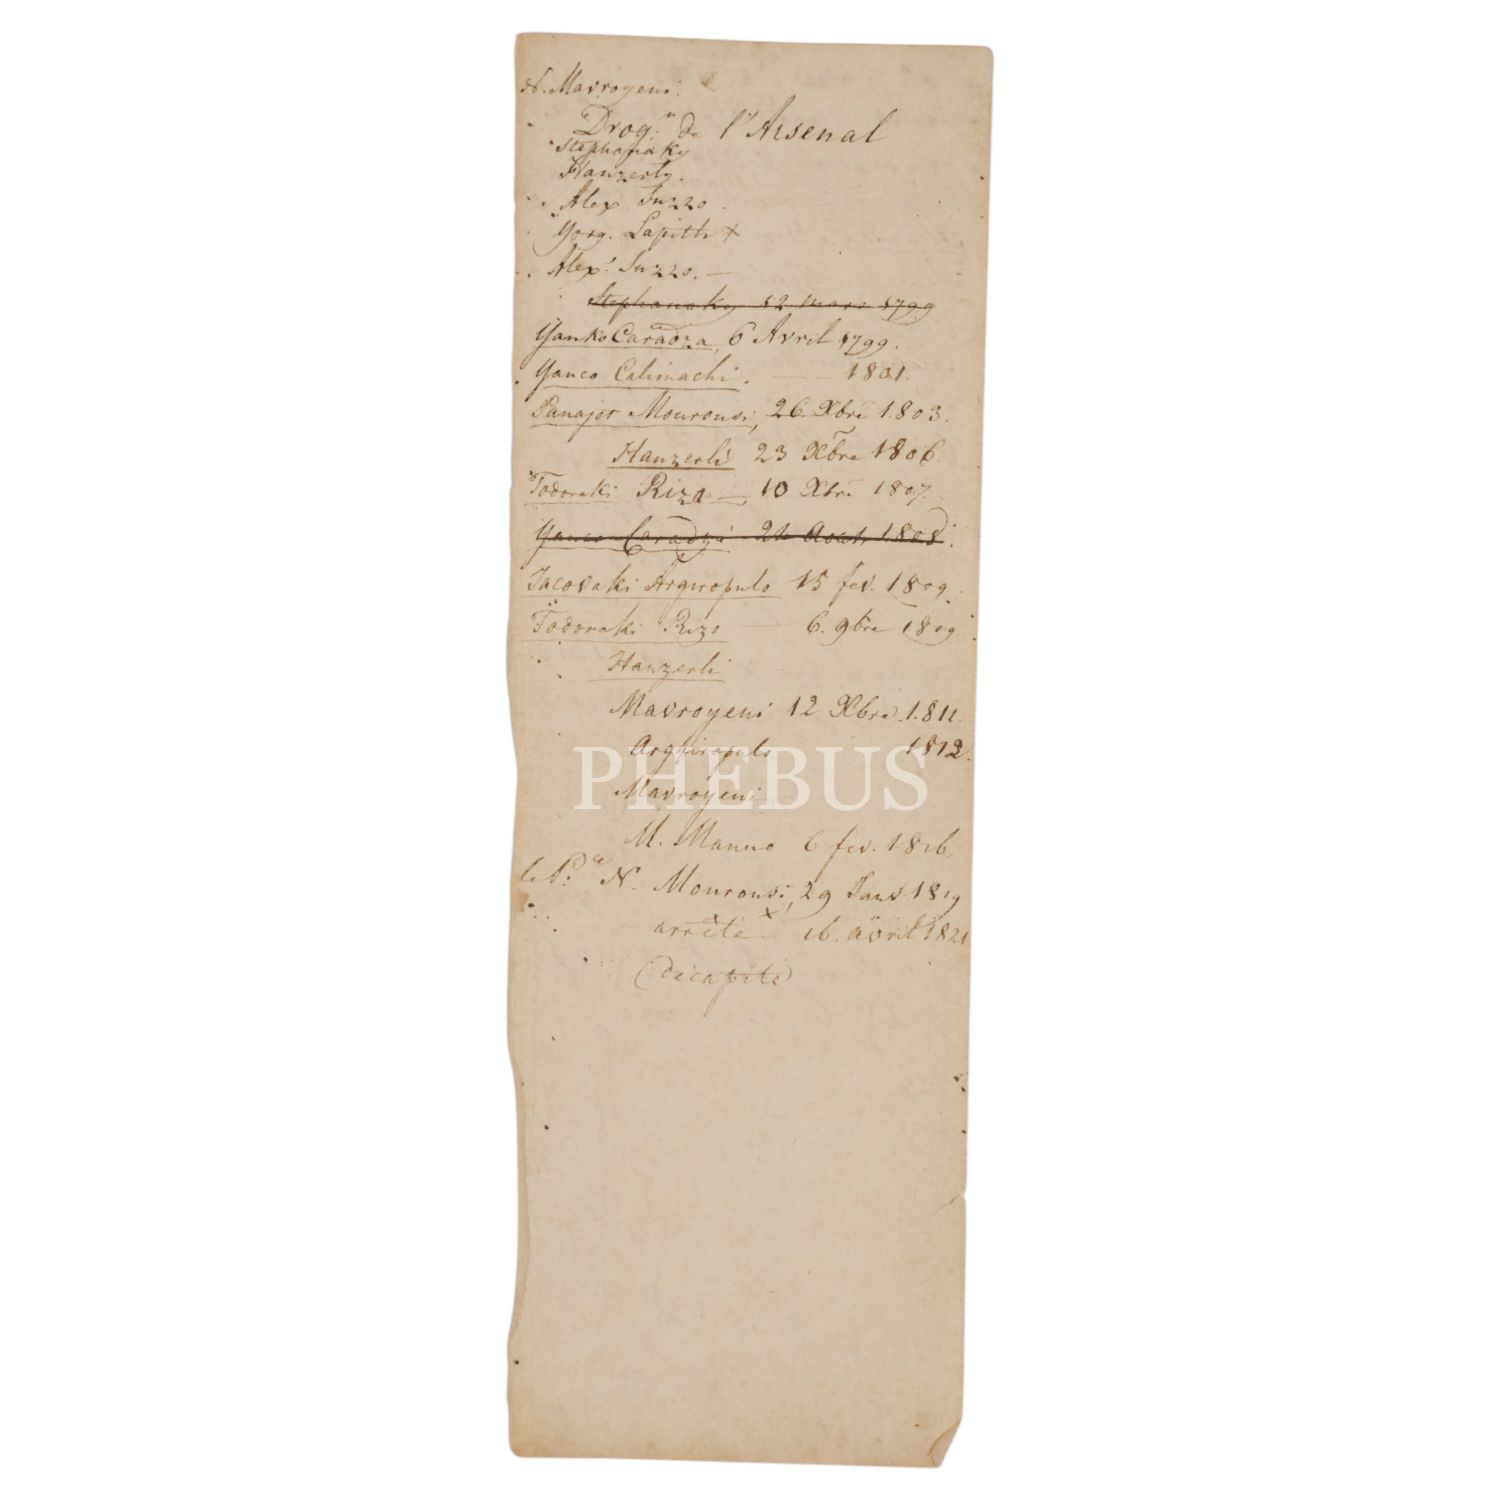 N. Mavroyeni.
Drog.n de l'Arsenal
Stephanaky
Hanzerly.
Alex Suzzo.
Yorg. Lapith +
Alex.r Suzzo. —
Stephanaky 12 mars 1799
Yanko Caradza, 6 Avril 1799.
Yanco Calimachi. — 1801.
Panajot Mourousi, 26. Xbre 1803.
Hanzerli 23 Xbre 1806.
Todoraki Rizo — 10 Xbre 1807.
Yanco Caradza 24 Aout 1808.
Jacovaki Argiropulo 15 fev. 1809.
Todoraki Rizo — 6. 9bre 1809
Hanzerli
Mavroyeni 12 Xbre. 1811.
Argiropulo 1812.
Mavroyeni —
PHEBUS
M. Manno 6 fev. 1816.
le P.ce N. Mourousi, 29 Janv. 1819
arrêté — 16. avril 1821
(décapité)